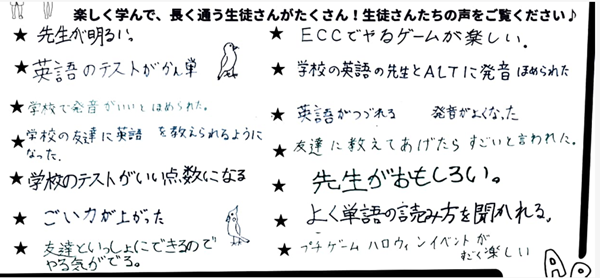 楽しく学んで、長く通う生徒さんがたくさん！生徒さんたちの声をご覧ください♪
★ 先生が明るい。
★ 英語のテストがかん単
★ 学校で発音がいいとほめられた。
★ 学校の友達に英語 を教えられるように
なった。
★ 学校のテストがいい点数になる
★ ごい力が上がった
★ 友達といっしょにできるので
やる気がでる。
★ ECCでやるゲームが楽しい.
★ 学校の英語の先生とALTに発音ほめられた
★ 英語がつづれる 発音がよくなった
★ 友達に教えてあげたらすごいと言われた。
★ 先生がおもしろい。
★ よく単語の読み方を聞かれる.
★ プチゲーム ハロウィンイベントが
楽しい